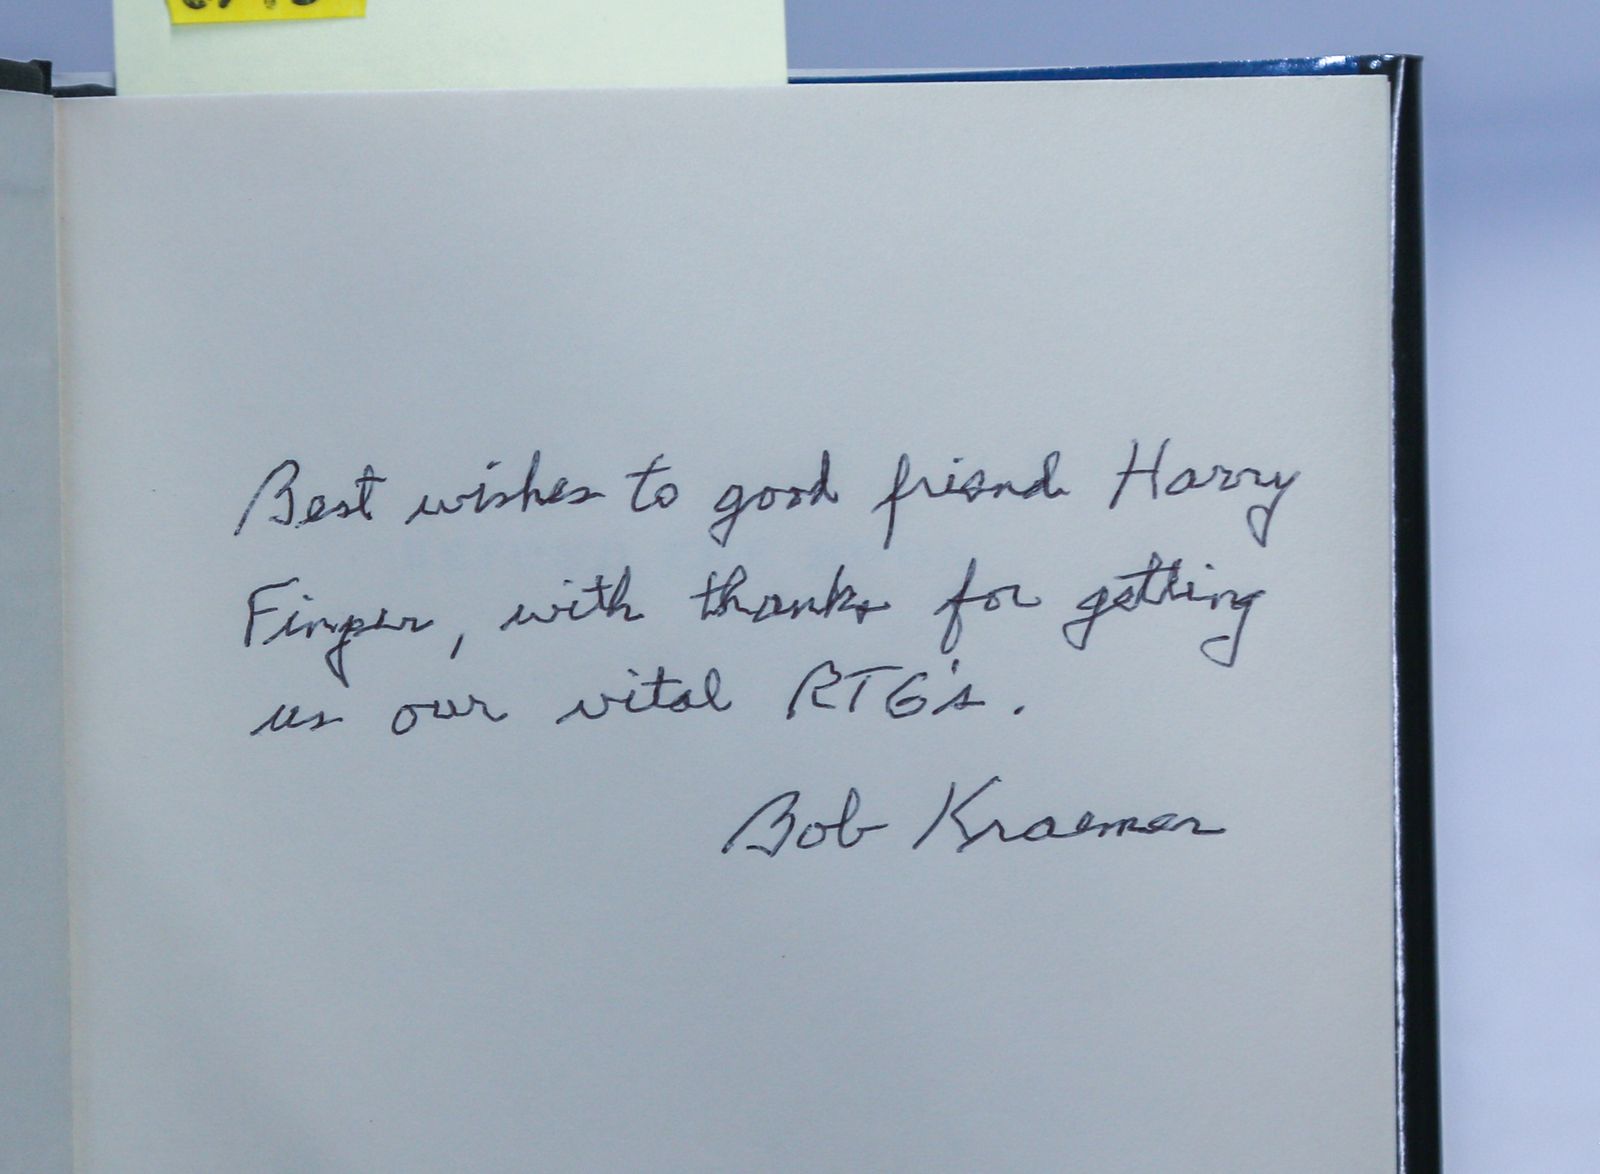 Best wishes to good friend Harry
Finger, with thanks for getting
us our vital RTG's.
Bob Kraemer